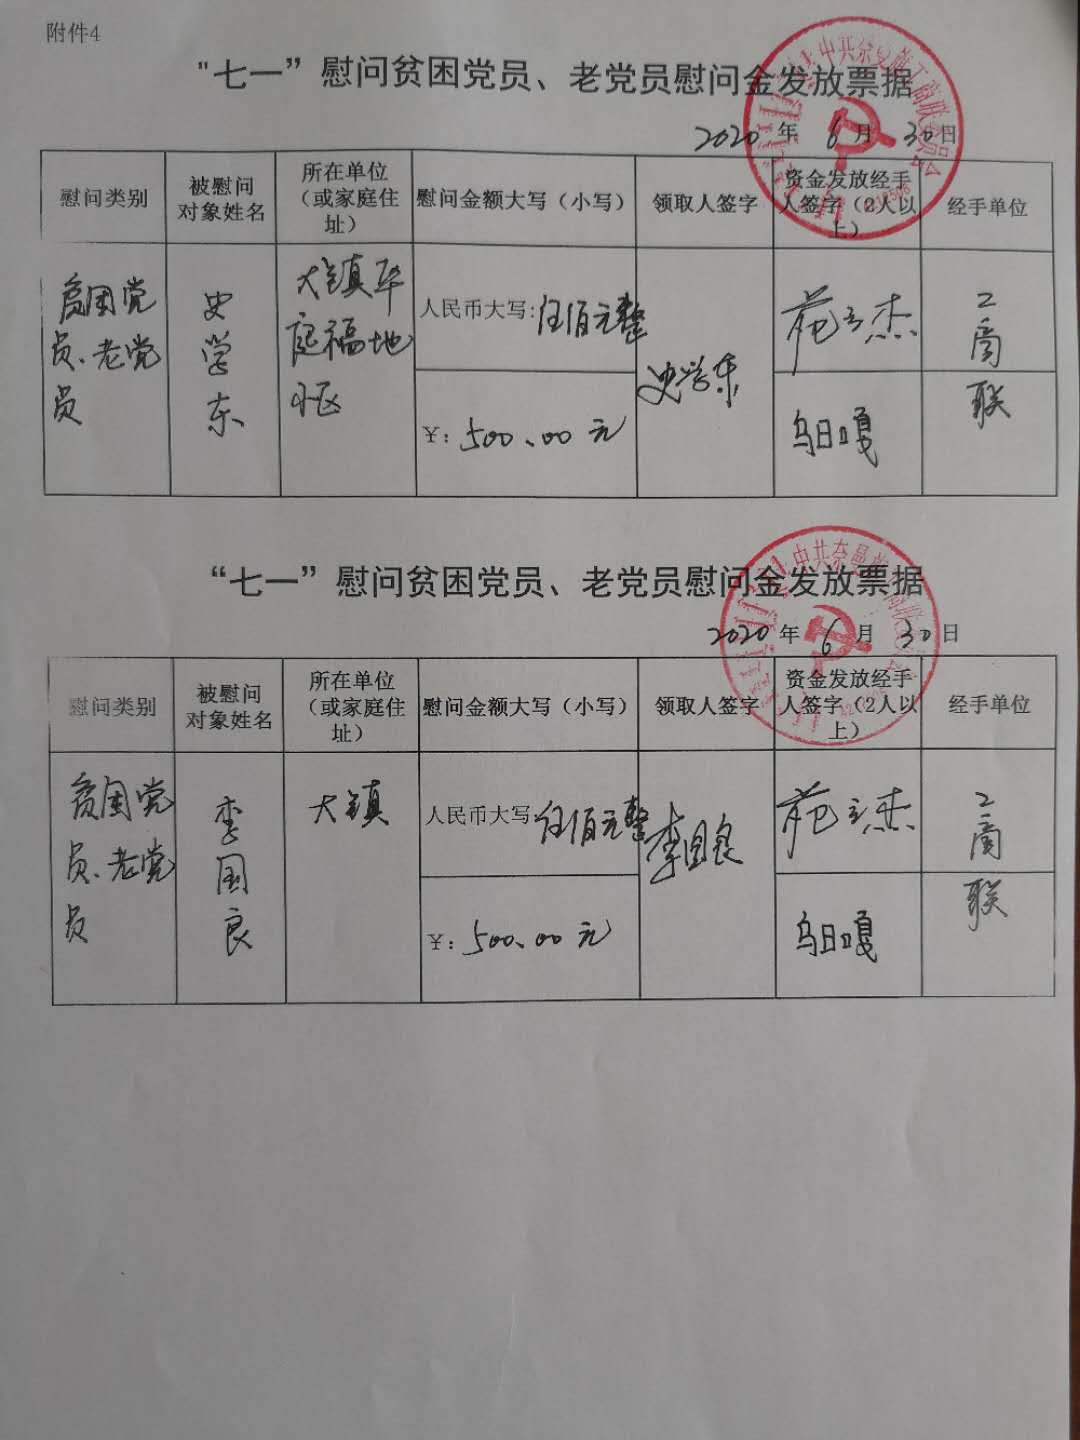 附件4
"七一”慰问贫困党员、老党员慰问金发放票据
2020年6月30日
慰问类别 被慰问对象姓名 所在单位(或家庭住址) 慰问金额大写(小写) 领取人签字 资金发放经手人签字(2人以上) 经手单位
贫困党员、老党员 史学东 大镇 福地小区 人民币大写:伍佰元整 史学东 苑立杰 工商联
¥:500.00元 乌日嘎
“七一”慰问贫困党员、老党员慰问金发放票据
2020年6月30日
慰问类别 被慰问对象姓名 所在单位(或家庭住址) 慰问金额大写(小写) 领取人签字 资金发放经手人签字(2人以上) 经手单位
贫困党员、老党员 李国良 大镇 人民币大写:伍佰元整 李国良 苑立杰 工商联
¥:500.00元 乌日嘎